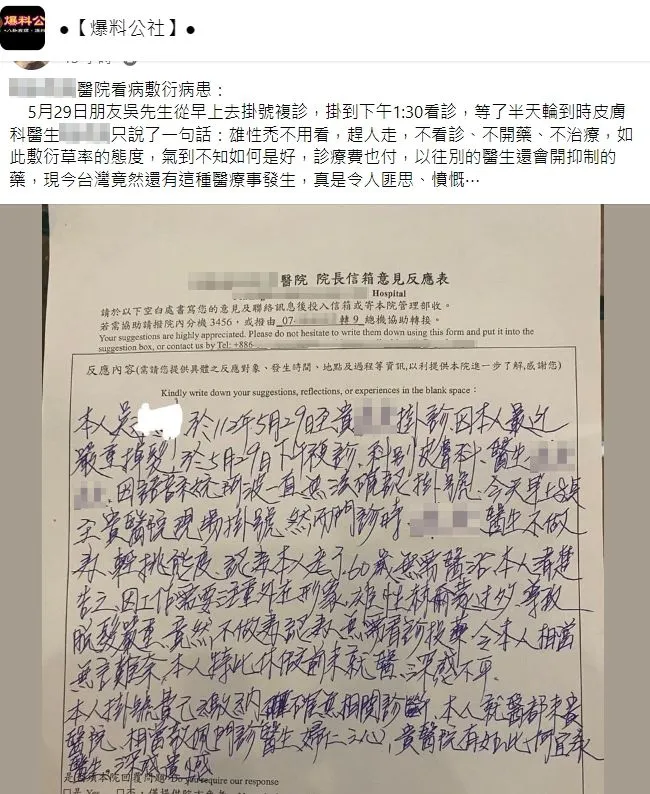 爆料公
●【爆料公社】●
醫院看病敷衍病患：
5月29日朋友吳先生從早上去掛號複診，掛到下午1:30看診，等了半天輪到時皮膚
科醫生 只說了一句話：雄性禿不用看，趕人走，不看診、不開藥、不治療，如
此敷衍草率的態度，氣到不知如何是好，診療費也付，以往別的醫生還會開抑制的
藥，現今台灣竟然還有這種醫療事發生，真是令人匪思、憤慨…
醫院 院長信箱意見反應表
Hospital
請於以下空白處書寫您的意見及聯絡訊息後投入信箱或寄本院管理部收。
若需協助請撥院內分機 3456，或撥由 07- 轉 9 總機協助轉接。
Your suggestions are highly appreciated. Please do not hesitate to write them down using this form and put it into the
suggestion box, or contact us by Tel: +886-
反應內容(需請您提供具體之反應對象、發生時間、地點及過程等資訊,以利提供本院進一步了解,感謝您)
Kindly write down your suggestions, reflections, or experiences in the blank space：
本人吳 於112年5月29日至貴 掛診，因本人最近
嚴重掉髮，於5月29日下午複診，科別皮膚科、醫生
，因語音系統 一直無法確認掛號，今天早上8點
至貴醫院現場掛號，然而門診時， 醫生不做
為，輕挑態度，認為本人走了，60歲無需醫治，本人清楚
告之，因工作需要注重外在形象，雄性荷爾蒙過多導致
脫髮嚴重，竟然不做為認為無需看診投藥，令本人相當
無言難奈，本人特此休假前來就醫，深感不平。
本人掛號費已繳納 無相關診斷，本人就醫都來貴
醫院，相當敬佩門診醫生婦仁之心，貴醫院有如此何宜敬
醫生，深感遺憾
是 須本院回覆問題 Do you require our response
□是 Yes □否，僅提供院方參